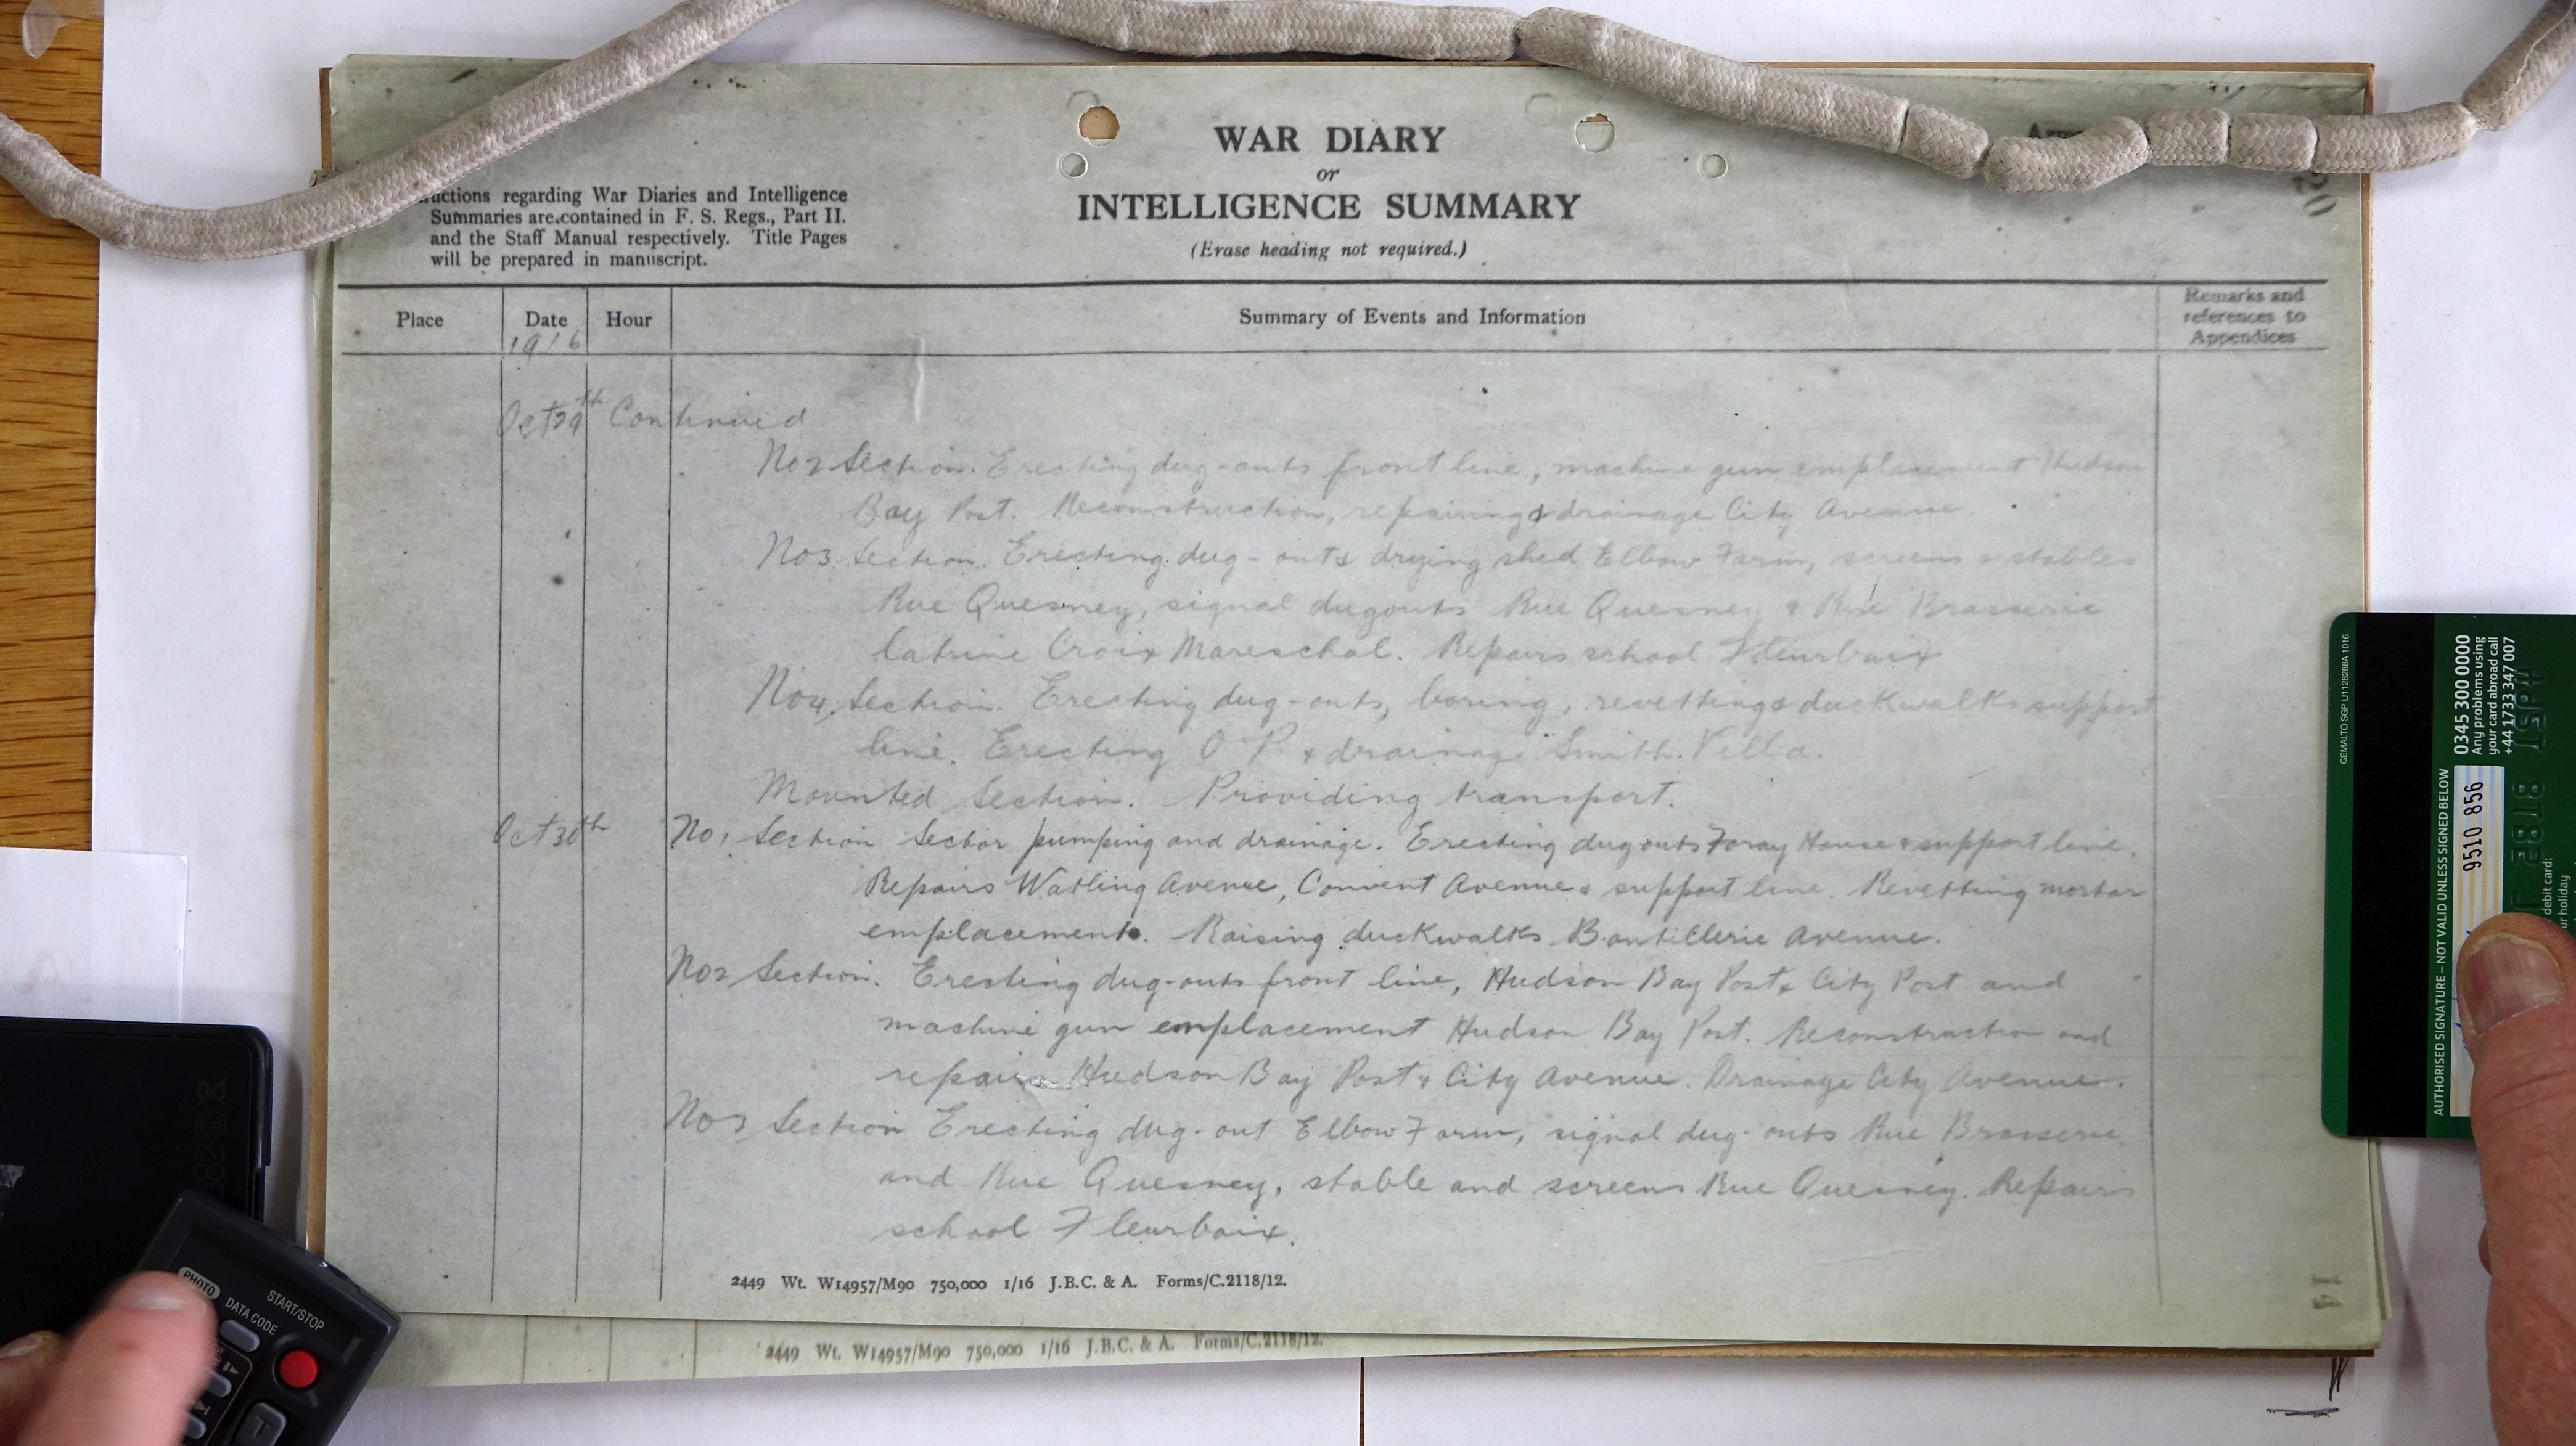 WAR DIARY
or
INTELLIGENCE SUMMARY
(Erase heading not required.)
uctions regarding War Diaries and Intelligence
Summaries are contained in F. S. Regs., Part II.
and the Staff Manual respectively. Title Pages
will be prepared in manuscript.
Place Date Hour Summary of Events and Information Remarks and references to Appendices
1916
Oct 29th Continued
No 2 Section. Erecting dug-outs front line, machine gun emplacement Hudson
Bay Post. Reconstruction, repairing & drainage City Avenue.
No 3 Section. Erecting dug-outs drying shed Elbow Farm, screens & stables
Rue Quesney, signal dugouts Rue Quesney & Rue Brasserie
latrine Croix Mareschal. Repairs school Fleurbaix
No 4 Section. Erecting dug-outs, boring, revetting & duckwalks support
line. Erecting O.P. & drainage Smith. Villa.
Mounted Section. Providing transport.
Oct 30th No 1 Section Sector pumping and drainage. Erecting dugouts Foray House & support line.
Repairs Watling Avenue, Convent Avenue & support line. Revetting mortar
emplacements. Raising duckwalks Boutillerie Avenue.
No 2 Section. Erecting dug-outs front line, Hudson Bay Post & City Post and
machine gun emplacement Hudson Bay Post. Reconstruction and
repairs Hudson Bay Post & City Avenue. Drainage City Avenue.
No 3 Section Erecting dug-out Elbow Farm, signal dug-outs Rue Brasserie
and Rue Quesney, stable and screens Rue Quesney. Repairs
school Fleurbaix.
2449 Wt. W14957/M90 750,000 1/16 J.B.C. & A. Forms/C.2118/12.
2449 Wt. W14957/M90 750,000 1/16 J.B.C. & A. Forms/C.2118/12.
14
PHOTO
DATA CODE
START/STOP
GEMALTO SGP U1128288A 1016
0345 300 0000
Any problems using
your card abroad call
+44 1733 347 007
AUTHORISED SIGNATURE – NOT VALID UNLESS SIGNED BELOW
9510 856
debit card:
ur holiday